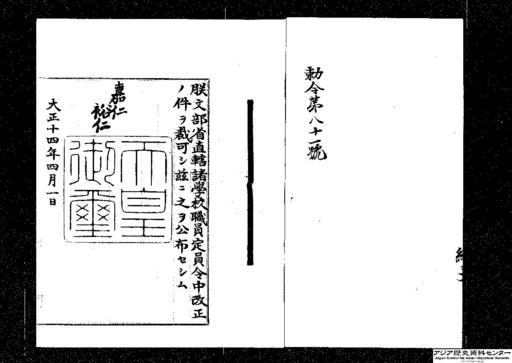 勅令第八十一號
朕文部省直轄諸學校職員定員令中改正
ノ件ヲ裁可シ茲ニ之ヲ公布セシム
嘉仁
裕仁
天皇
御璽
大正十四年四月一日
アジア歴史資料センター
Japan Center for Asian Historical Records